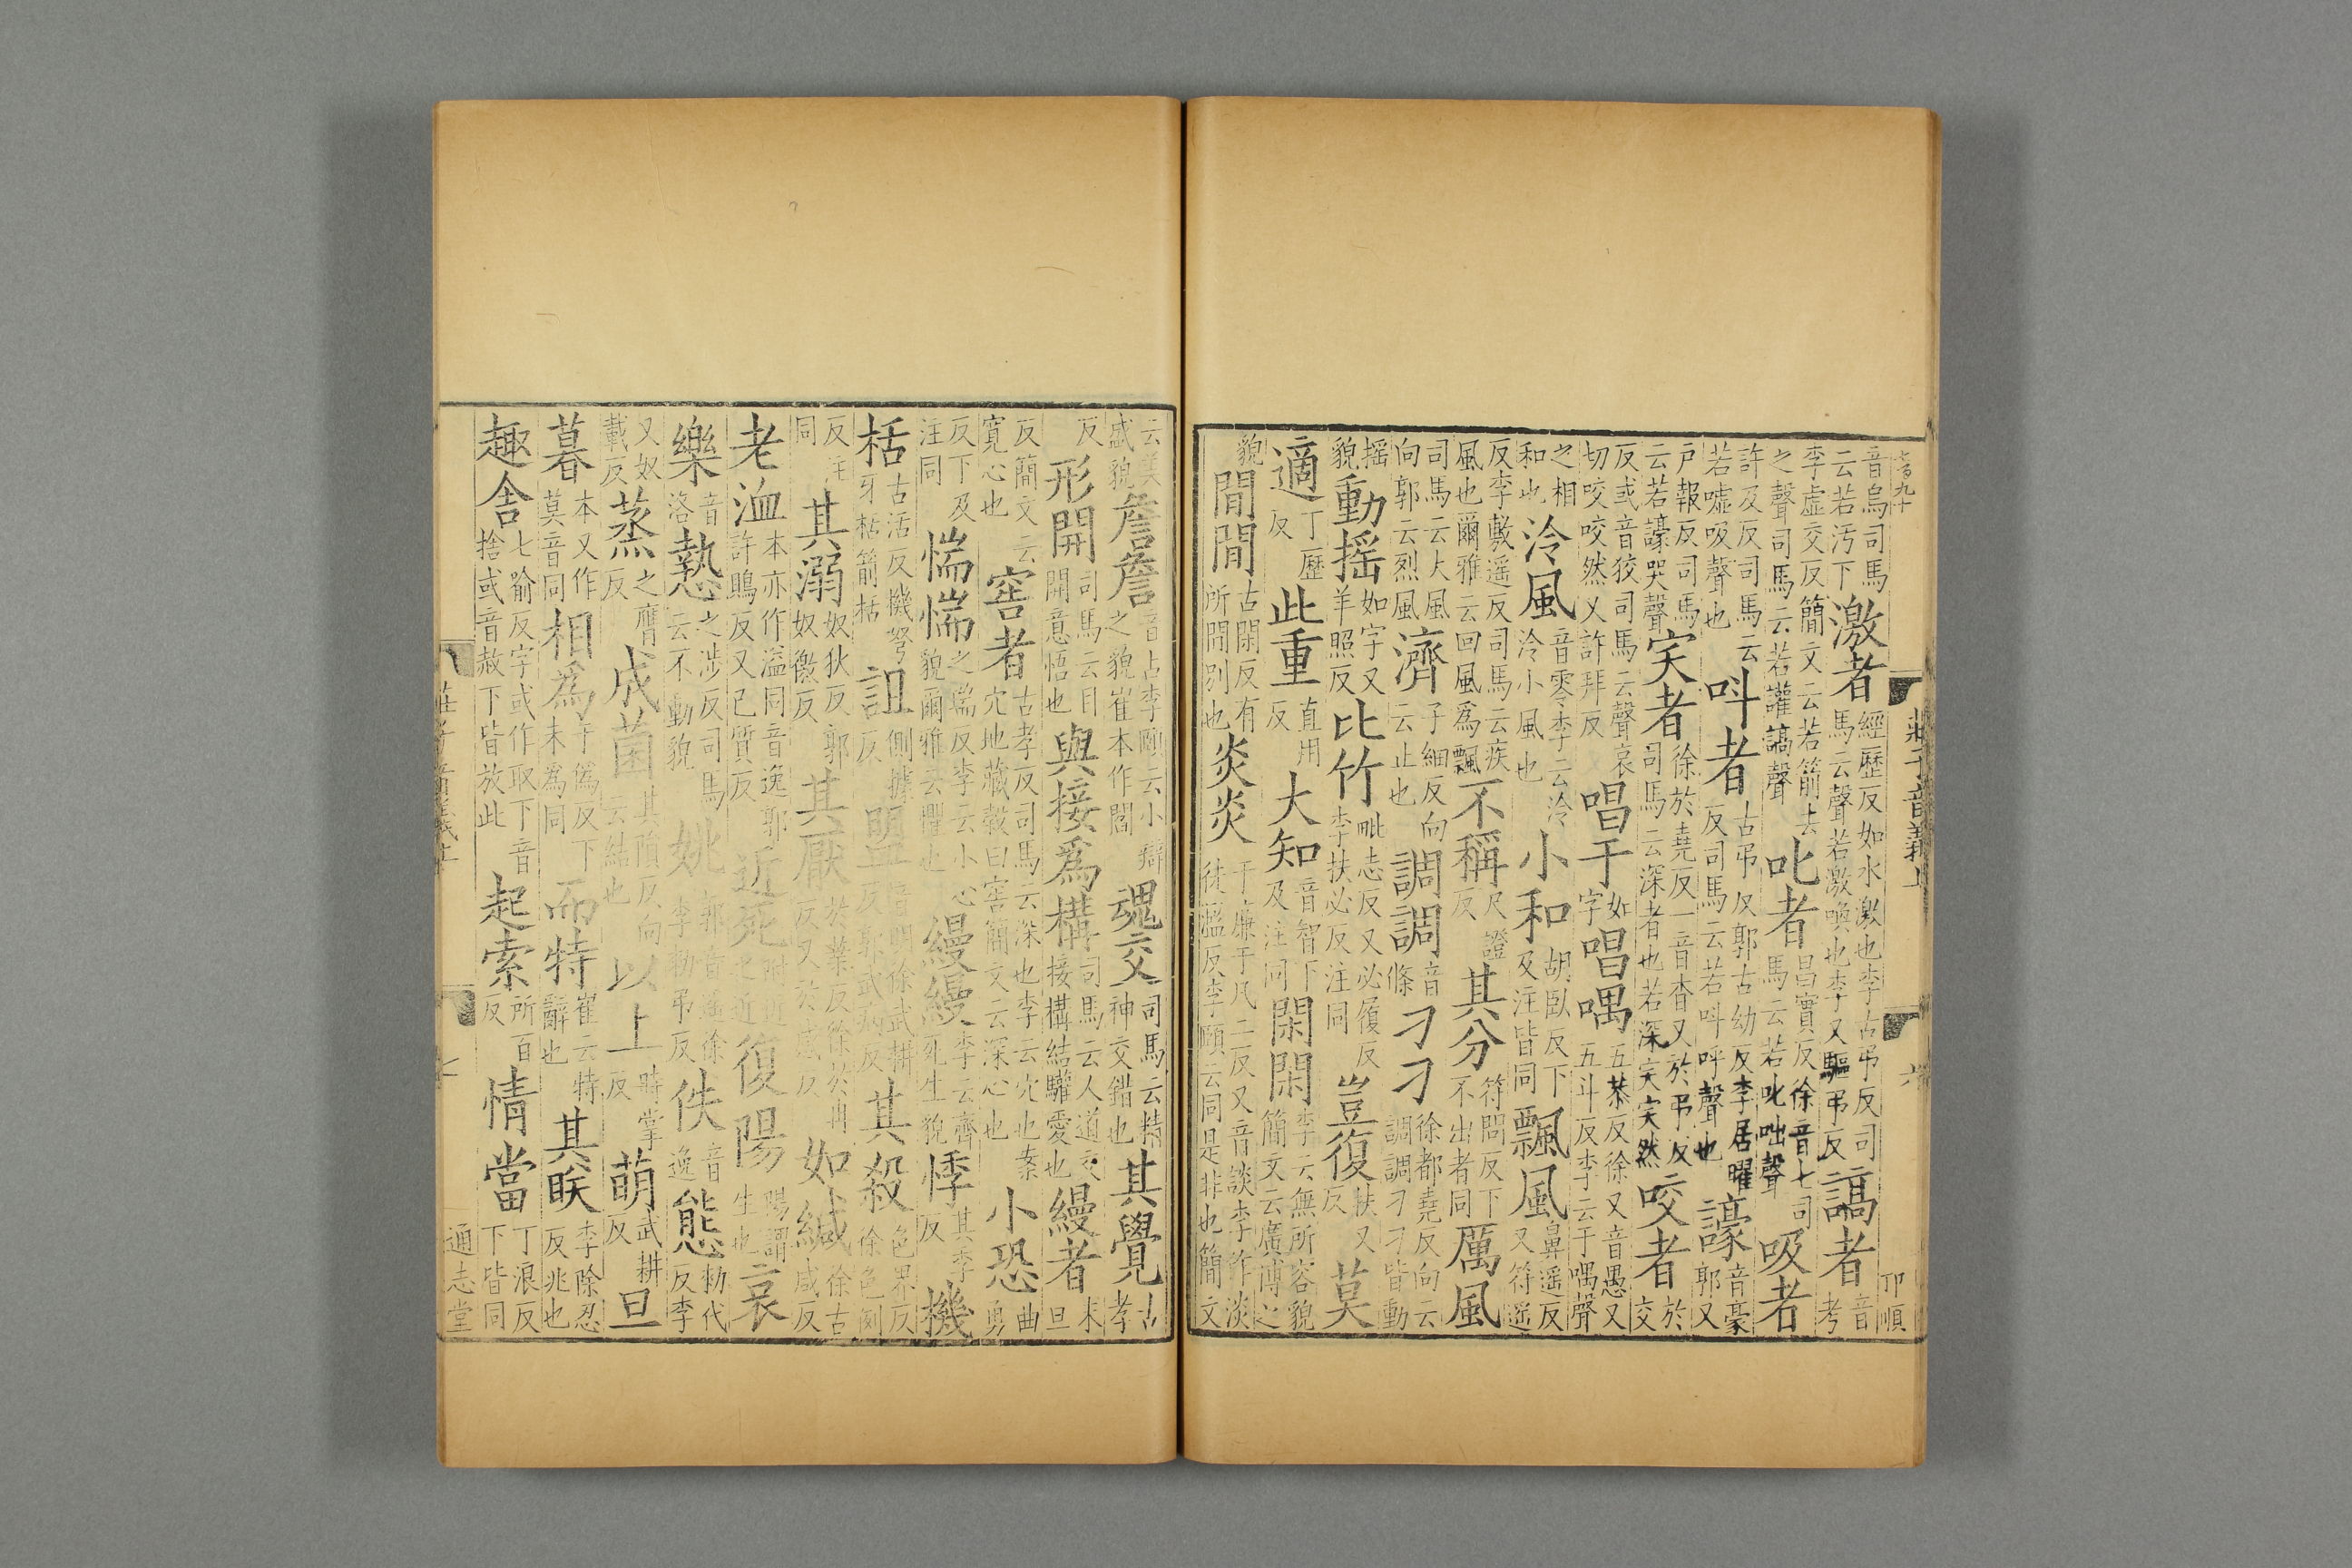 莊子音義上 六
音烏司馬云若汚下激者經歷反如水激也李古弔反司馬云聲若激喚也李又驅弔反謞者音考
李虛交反簡文云若箭去之聲司馬云若讙謞聲叱者昌實反徐音七司馬云若叱咄聲吸者
許及反司馬云若噓吸聲也呌者古弔反郭古幼反李居曜反司馬云若呌呼聲也譹音豪郭又
戶報反司馬云若譹哭聲宎者徐於堯反一音杳又於弔反司馬云深者也若深宎宎然咬者於交
反或音狡司馬云聲哀切咬咬然又許拜反唱于如字唱喁五恭反徐又音愚又五斗反李云于喁聲
之相和也泠風音零李云泠泠小風也小和胡臥反下及注皆同飄風鼻遥反又符遥
反李敷遥反司馬云疾風也爾雅云回風爲飄不稱尺證反其分符問反下不出者同厲風
司馬云大風向郭云烈風濟子細反向云止也調調音條刁刁徐都堯反向云調調刁刁皆動
搖貌動搖如字又羊照反比竹毗志反又必履反李扶必反注同豈復扶又反莫
適丁歷反此重直用反大知音智下及注同閑閑李云無所容貌簡文云廣博之
貌閒閒古閑反有所閒別也炎炎于廉于凡二反又音談李作淡徒濫反李頤云同是非也簡文
云美盛貌詹詹音占李頤云小辯之貌崔本作閻魂交司馬云精神交錯也其覺古孝
反形開司馬云目開意悟也與接爲構司馬云人道交接構結驩愛也縵者末旦
反簡文云寬心也窖者古孝反司馬云深也李云穴也案穴地藏穀曰窖簡文云深心也小恐曲勇
反下及注同惴惴之瑞反李云小心貌爾雅云懼也縵縵李云齊死生貌悸其季反機
栝古活反機弩牙栝箭栝詛側據反盟音明徐武耕反郭武病反其殺色界反徐色例
反注同其溺奴狄反郭奴徼反其厭於葉反徐於冉反又於感反如緘徐古咸反
老洫本亦作溢同音逸郭許鵙反又已質反近死附近之近復陽陽謂生也哀
樂音洛慹之涉反司馬云不動貌姚郭音遥徐李勑弔反佚音逸態勑代反李
又奴載反蒸之膺反成菌其隕反向云結也以上時掌反萌武耕反旦
暮本又作莫音同相爲于僞反下未爲同而特崔云特辭也其眹李除忍反兆也
趣舍七喻反字或作取下音捨或音赦下皆放此起索所百反情當丁浪反下皆同
莊子音義上
通志堂